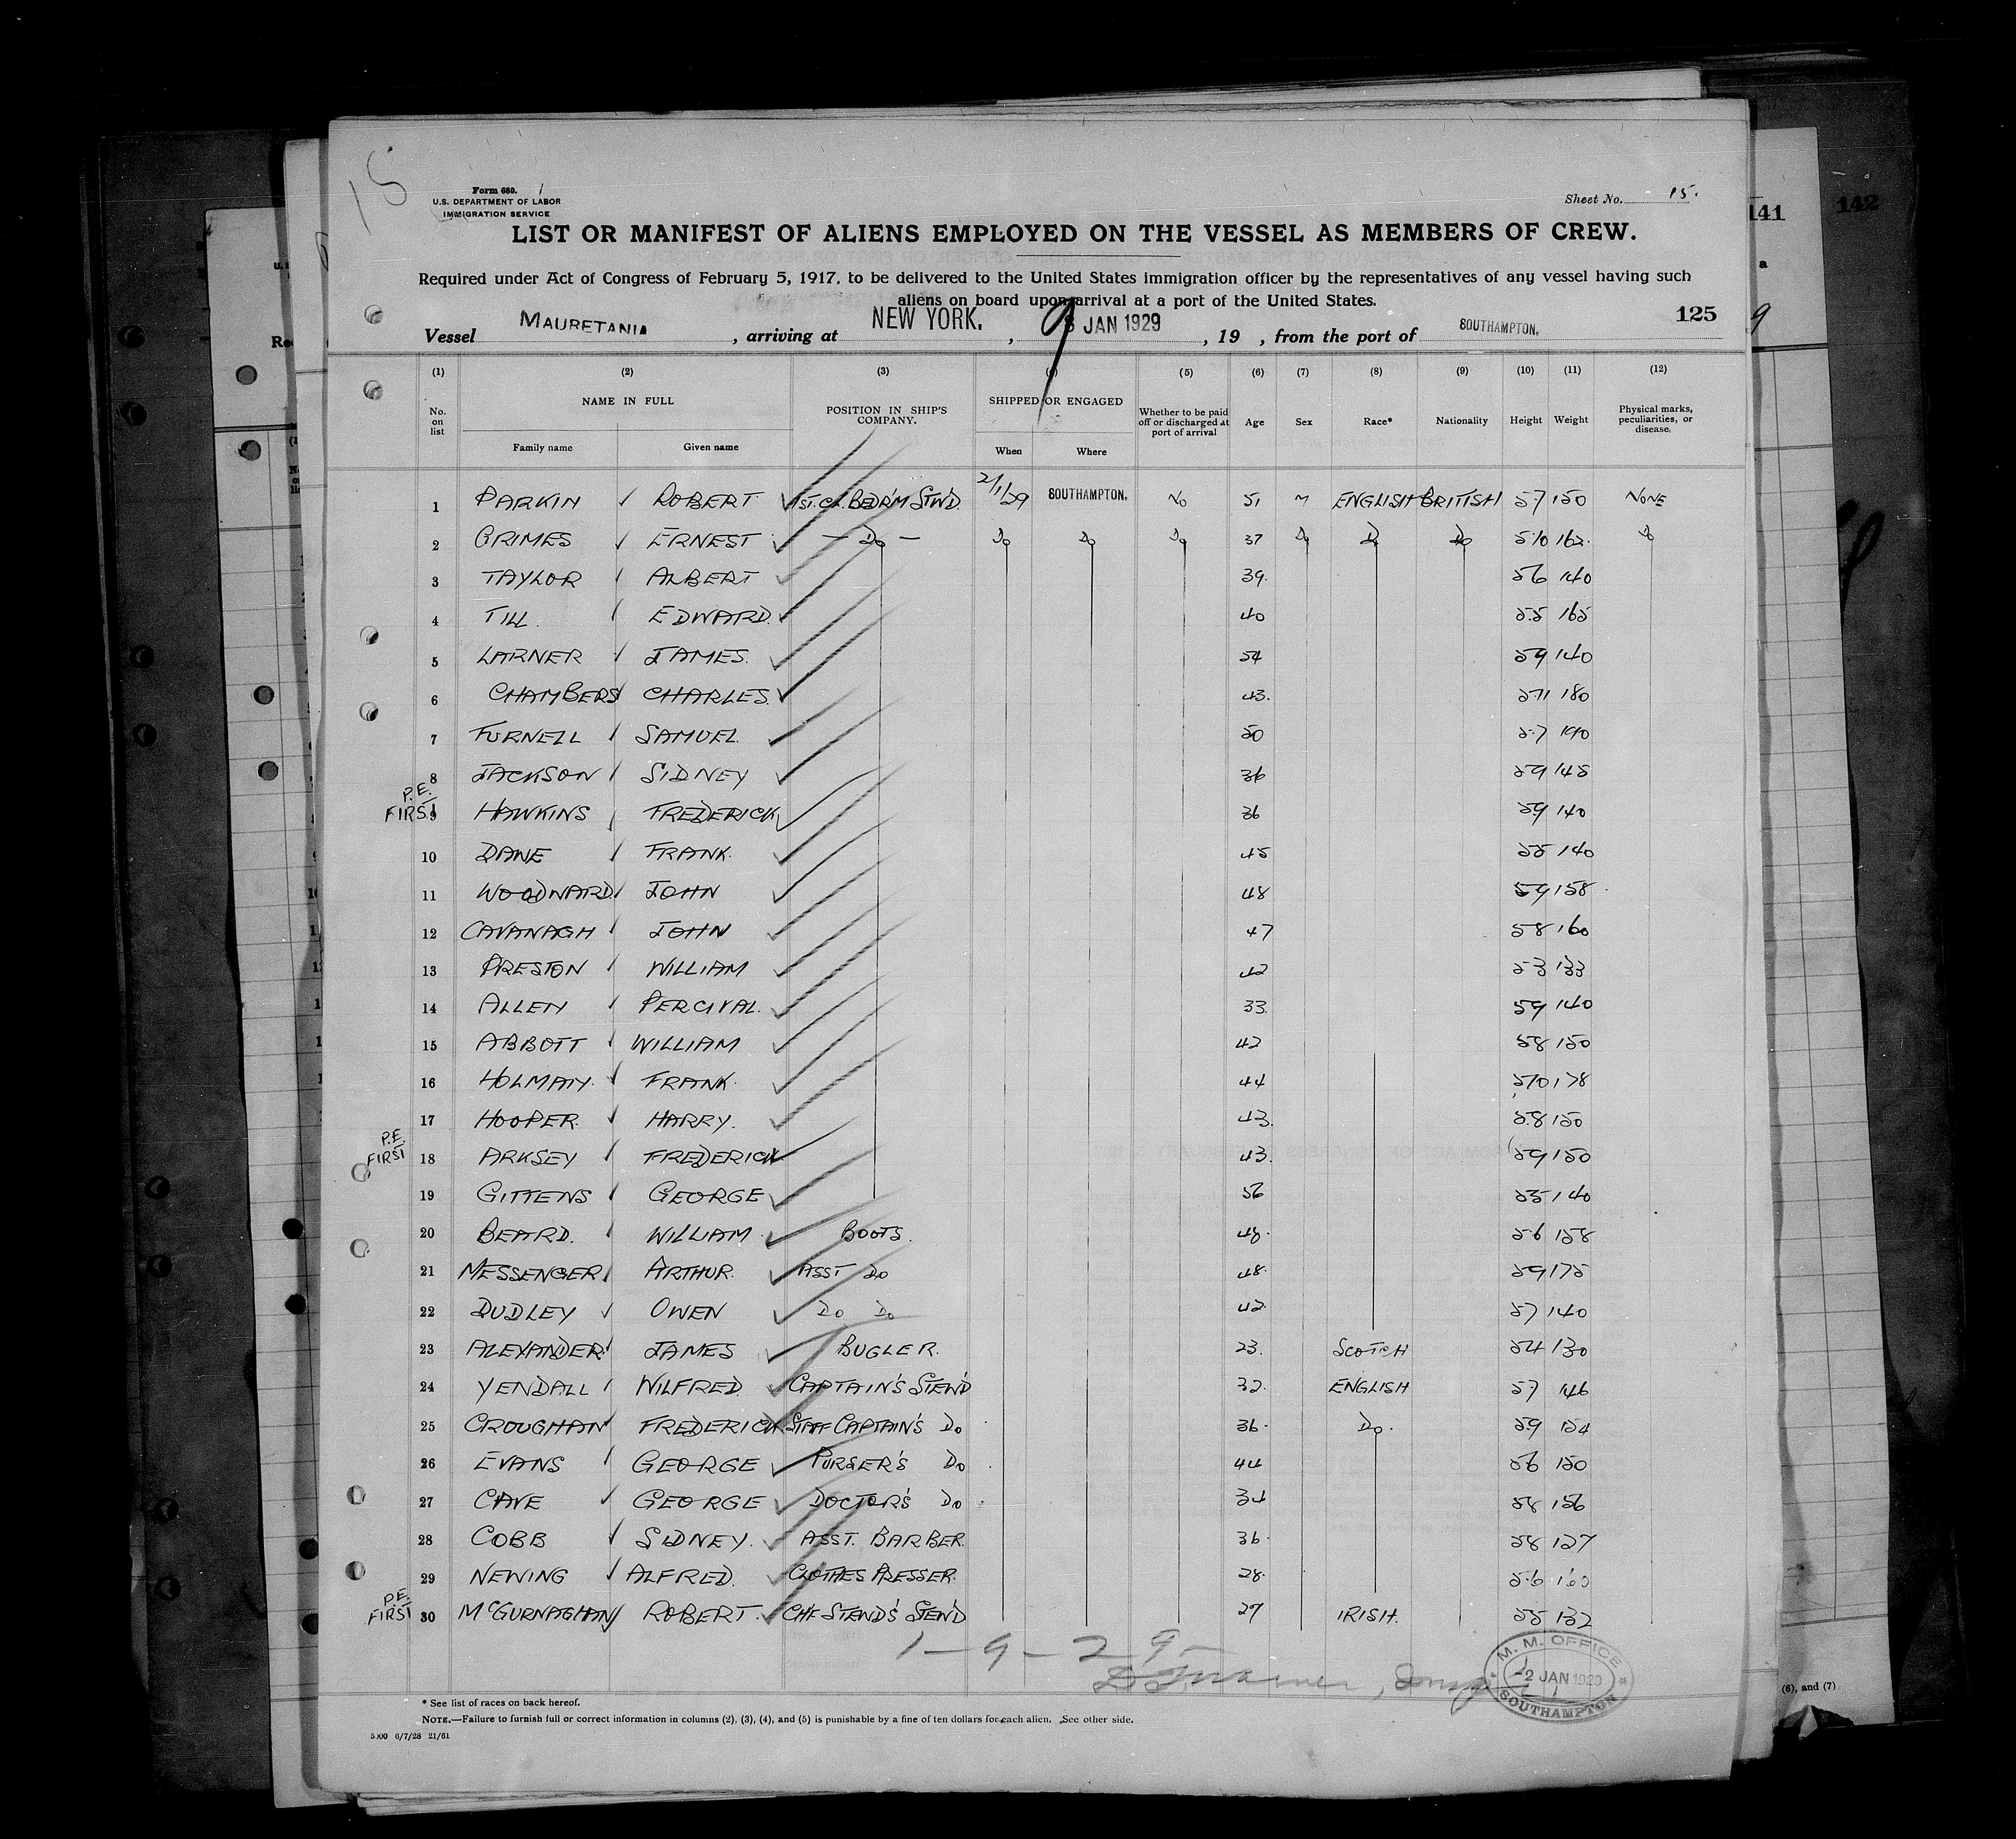 15
Form 680.
U.S. DEPARTMENT OF LABOR
IMMIGRATION SERVICE
Sheet No. 15.
LIST OR MANIFEST OF ALIENS EMPLOYED ON THE VESSEL AS MEMBERS OF CREW.
Required under Act of Congress of February 5, 1917, to be delivered to the United States immigration officer by the representatives of any vessel having such
aliens on board upon arrival at a port of the United States.
125
Vessel MAURETANIA, arriving at NEW YORK., 9 JAN 1929, 19 , from the port of SOUTHAMPTON.
(1) (2) (3) (4) (5) (6) (7) (8) (9) (10) (11) (12)
No. on list NAME IN FULL Family name Given name POSITION IN SHIP'S COMPANY. SHIPPED OR ENGAGED When Where Whether to be paid off or discharged at port of arrival Age Sex Race* Nationality Height Weight Physical marks, peculiarities, or disease.
1 PARKIN ROBERT 1ST. CL. BEDR'M STW'D. 2/1/29 SOUTHAMPTON. NO 51 M ENGLISH BRITISH 5.7 150 NONE
2 GRIMES ERNEST — Do — Do Do Do 37 Do Do Do 5.10 162. Do
3 TAYLOR ALBERT 39. 56 140
4 TILL. EDWARD. 40 5.5 165
5 LARNER JAMES. 54 59 140
6 CHAMBERS CHARLES. 43. 5.11 180
7 FURNELL SAMUEL. 50 5.7 190
8 JACKSON SIDNEY 36 59 145
P.E. FIRST 9 HAWKINS FREDERICK 36 59 140
10 DANE FRANK. 45 55 140
11 WOODNARD. JOHN 48 59 158
12 CAVANAGH JOHN 47 58 160
13 PRESTON WILLIAM 42 53 133
14 ALLEN PERCIVAL. 33. 59 140
15 ABBOTT WILLIAM 42 58 150
16 HOLMAN. FRANK. 44 510 178
17 HOOPER. HARRY. 43. 5.8 150
P.E. FIRST 18 ARKSEY FREDERICK 43. 59 150
19 GITTENS GEORGE 56 55 140
20 BEARD. WILLIAM. BOOTS. 48. 5.6 158
21 MESSENGER ARTHUR. ASST Do 48. 59 175
22 DUDLEY OWEN Do Do 42. 57 140
23 ALEXANDER JAMES BUGLER. 23. SCOTCH 54 130
24 YENDALL WILFRED. CAPTAIN'S STEW'D 32. ENGLISH 57 146
25 CROUGHAN FREDERICK STAFF CAPTAIN'S Do 36. Do. 5.9 154
26 EVANS GEORGE PURSER'S Do 44 56 150
27 CAVE GEORGE DOCTOR'S Do 34 58 156
28 COBB SIDNEY. ASST. BARBER. 36. 58 127
29 NEWING ALFRED. CLOTHES PRESSER. 28. 5.6 160
P.E. FIRST 30 McGURNAGHAN ROBERT. CHF STEWD'S STEW'D 27 IRISH. 55 132
1-9-29-
M. M. OFFICE
2 JAN 1929
SOUTHAMPTON
* See list of races on back hereof.
NOTE.—Failure to furnish full or correct information in columns (2), (3), (4), and (5) is punishable by a fine of ten dollars for each alien. See other side.
5000 6/7/28 21/61
141
142
(6), and (7)